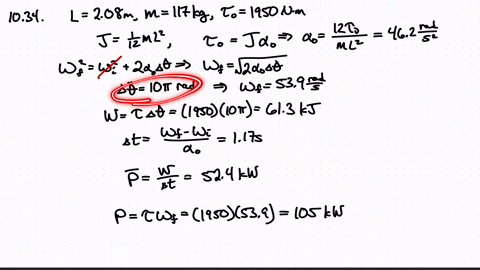 10.34. L = 2.08m, m = 117kg, τ₀ = 1950 N·m
J = 1/12 mL², τ₀ = Jα₀ ⇒ α₀ = 12τ₀/mL² = 46.2 rad/s²
ω_f² = ω_i² + 2α₀Δθ ⇒ ω_f = √2α₀Δθ
Δθ = 10π rad ⇒ ω_f = 53.9 rad/s
W = τΔθ = (1950)(10π) = 61.3 kJ
Δt = ω_f - ω_i/α₀ = 1.17s
P̄ = W/Δt = 52.4 kW
P = τω_f = (1950)(53.9) = 105 kW